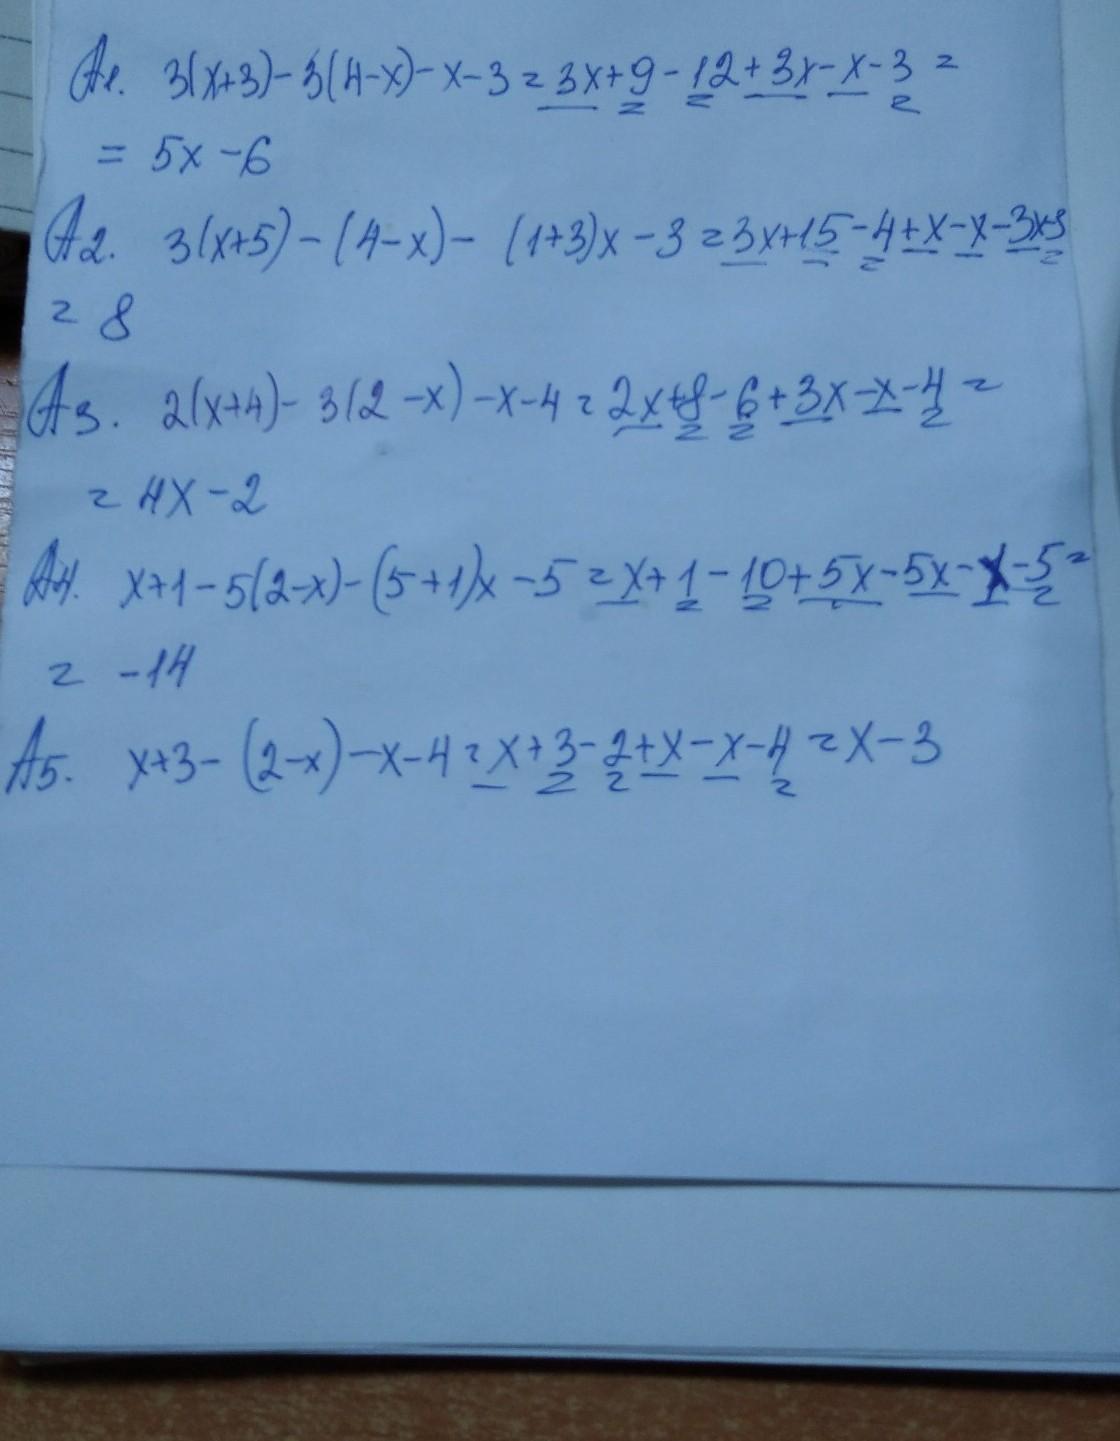 A1. 3(x+3)-3(4-x)-x-3=3x+9-12+3x-x-3=
= 5x-6
A2. 3(x+5)-(4-x)-(1+3)x-3=3x+15-4+x-x-3x-3
= 8
A3. 2(x+4)-3(2-x)-x-4=2x+8-6+3x-x-4=
= 4x-2
A4. x+1-5(2-x)-(5+1)x-5=x+1-10+5x-5x-x-5=
= -14
A5. x+3-(2-x)-x-4=x+3-2+x-x-4=x-3